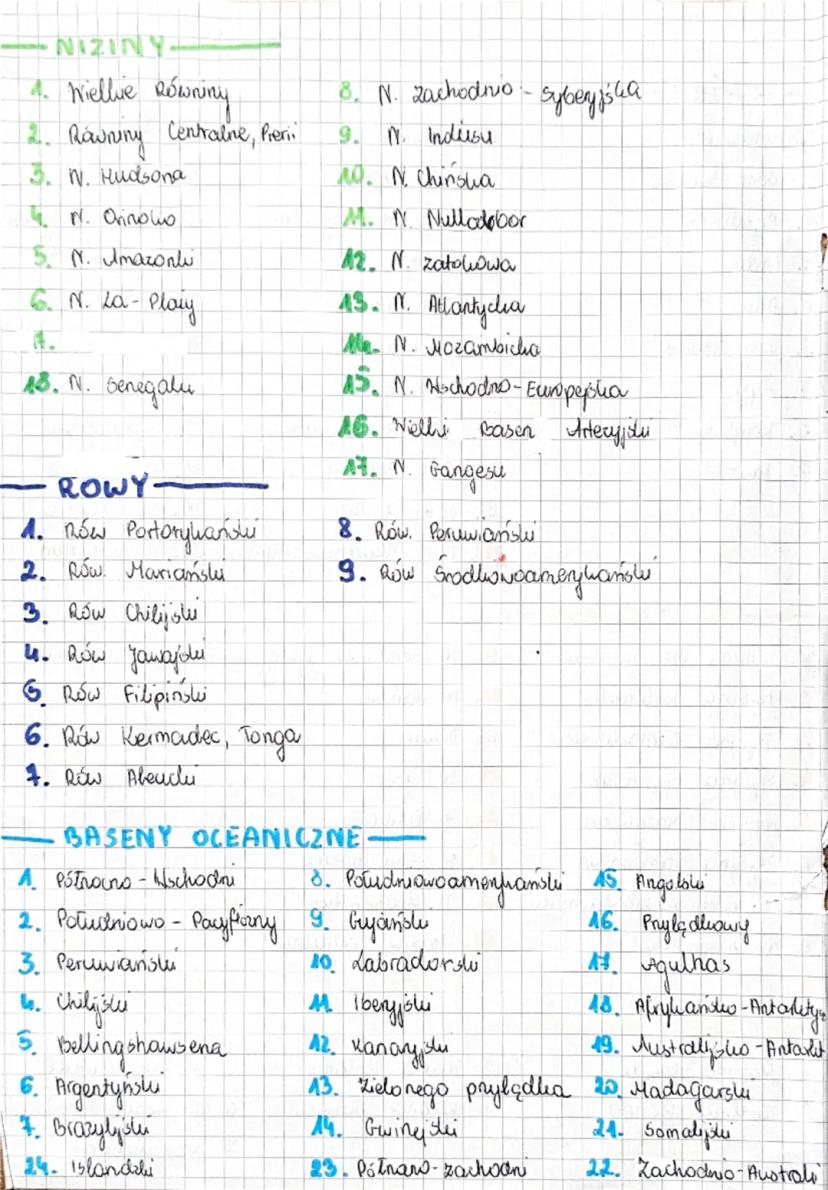 NIZINY
1. Wielkie Równiny
2. Równiny Centralne, Prerii
3. N. Hudsona
4. N. Orinoko
5. N. Amazonki
6. N. La-Platy
7.
18. N. Senegalu
8. N. Zachodnio-Syberyjska
9. N. Indusu
10. N. Chińska
11. N. Nulladobor
12. N. Zatokowa
13. N. Atlantycka
14. N. Mozambicka
15. N. Wschodno-Europejska
16. Wielki Basen Arteryjski
17. N. Gangesu
ROWY
1. Rów Portorykański
2. Rów. Mariański
3. Rów Chilijski
4. Rów Jawajski
5. Rów Filipiński
6. Rów Kermadec, Tonga
7. Rów Aleucki
8. Rów. Peruwiański
9. Rów Środkowoamerykański
BASENY OCEANICZNE
1. Północno-Wschodni
2. Południowo-Pacyficzny
3. Peruwiański
4. Chilijski
5. Bellingshausena
6. Argentyński
7. Brazylijski
24. Islandzki
8. Południowoamerykański
9. Gujański
10. Labradorski
11. Iberyjski
12. Kanaryjski
13. Zielonego przylądka
14. Gwinejski
23. Północno-zachodni
15. Angolski
16. Przylądkowy
17. Agulhas
18. Afrykańsko-Antarkty
19. Australijsko-Antarkt
20. Madagarski
21. Somalijski
22. Zachodnio-Australi